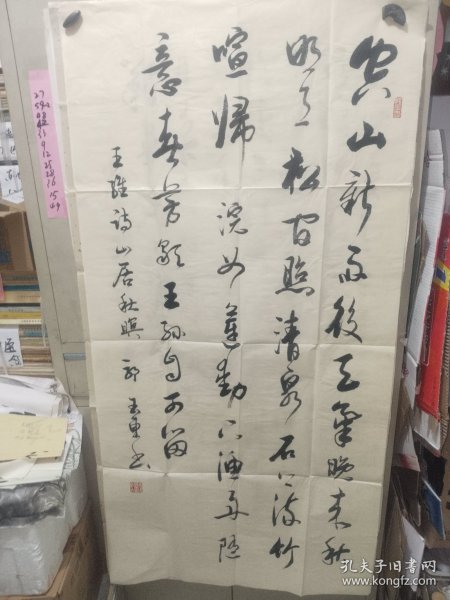 空山新雨後天氣晚来秋
明月松間照清泉石上流竹
喧歸浣女蓮動下漁舟随
意春芳歇王孫自可留
王維詩山居秋暝
孔夫子旧书网
www.kongfz.com